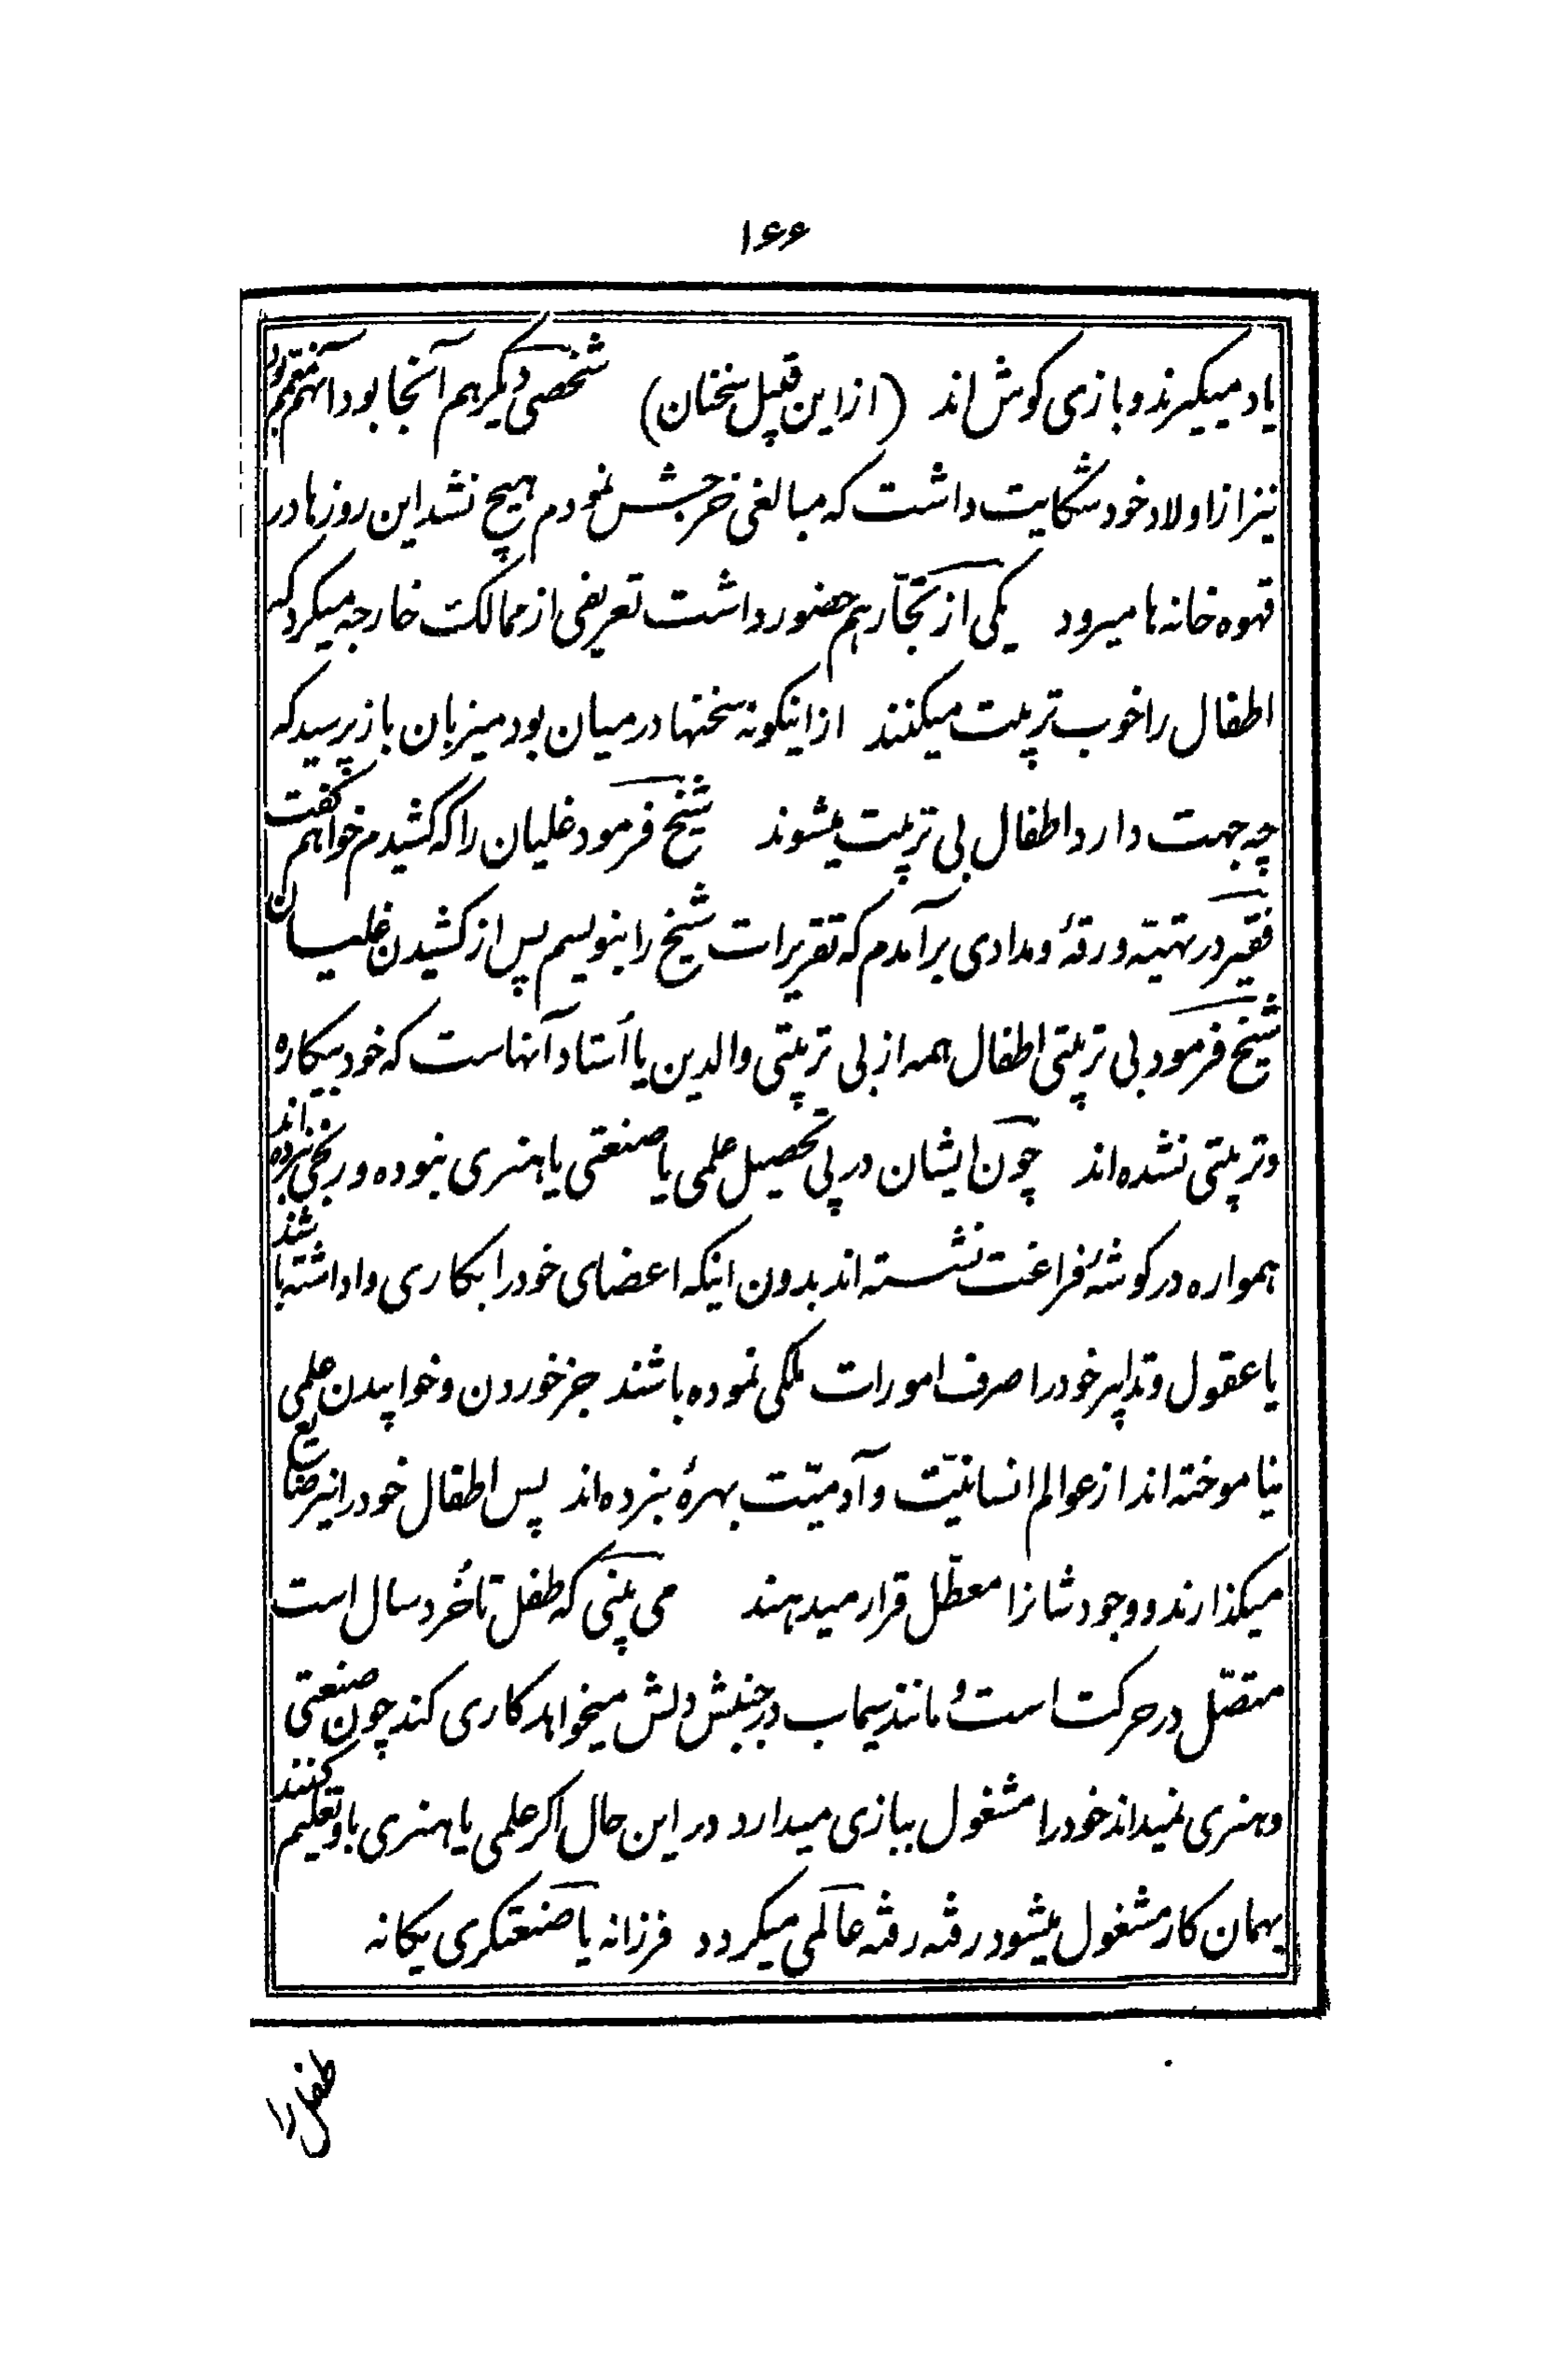 ۱۶۶
یاد میکیرند و بازی کوش اند (از این قبیل سخنان) شخصی دیکر هم آنجا بود آنهم
نیز از اولاد خود شکایت داشت که مبالغی خرجش نمودم هیچ نشد این روزها در
قهوه خانه ها میرود یکی از تجّار هم حضور داشت تعریفی از ممالک خارجه میکرد که
اطفال را خوب تربیت میکنند از اینکونه سخنها در میان بود میزبان باز پرسید که
چه جهت دارد اطفال بی تربیت میشوند شیخ فرمود غلیان را که کشیدم خواهم کفت
فقیر در تهیّه ورقهٔ و مدادی برآمدم که تقریرات شیخ را بنویسم پس از کشیدن غلیان
شیخ فرمود بی تربیتی اطفال همه از بی تربیتی والدین یا اُستاد آنهاست که خود بیکاره
و تربیتی نشده اند چون ایشان در پی تحصیل علمی یا صنعتی یا هنری نبوده و رنجی نبرده اند
همواره در کوشهٔ فراغت نشسته اند بدون اینکه اعضای خود را بکاری واداشته باشند
یا عقول و تدابیر خود را صرف امورات ملکی نموده باشند جز خوردن و خوابیدن علمی
نیاموخته اند از عوالم انسانیّت و آدمیّت بهرهٔ نبرده اند پس اطفال خود را نیز ضایع
میکذارند و وجودشانرا معطّل قرار میدهند می بینی که طفل تا خُرد سال است
متصّل در حرکت است و مانند سیماب در جنبش دلش میخواهد کاری کند چون صنعتی
و هنری نمیداند خود را مشغول ببازی میدارد در این حال اکر علمی یا هنری باو تعلیم کنند
بهمان کار مشغول میشود رفته رفته عالمی میکردد فرزانه یا صنعتکری یکانه
طفل را